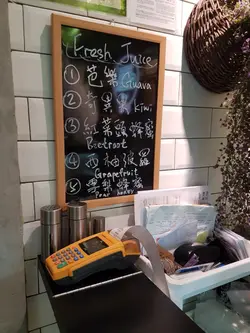 Fresh Juice
① 芭樂 Guava
② 奇異果 Kiwi
③ 紅菜頭蜂蜜
Beetroot
④ 西柚菠蘿
Grapefruit
⑤ 雪梨蜂蜜
Pear honey